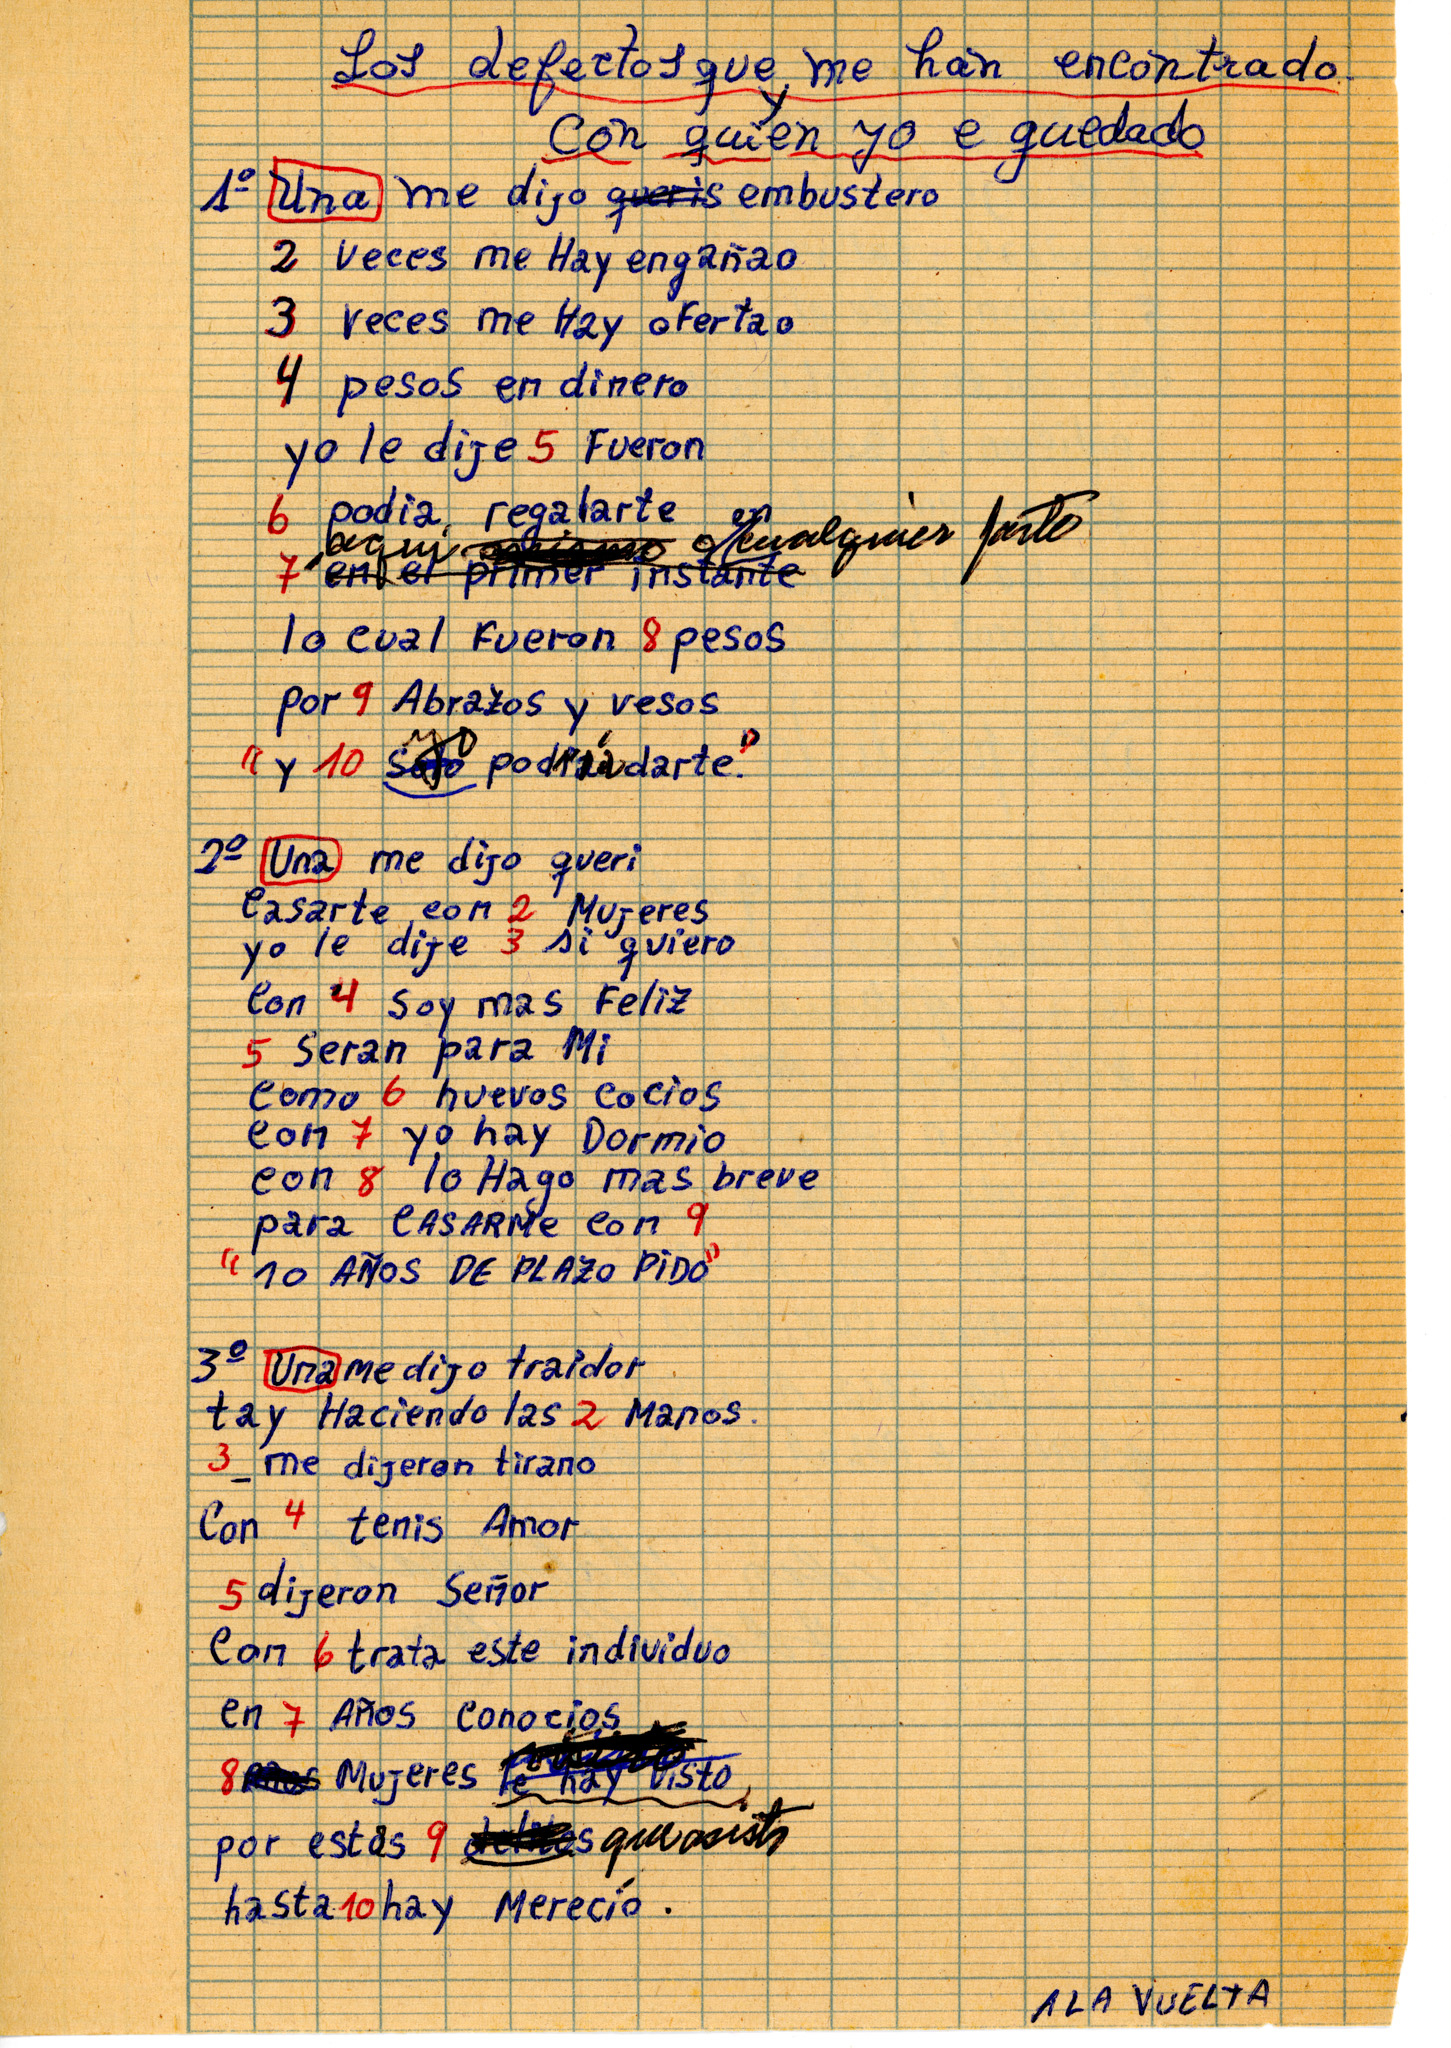 Los defectos que me han encontrado
y
Con quien yo e quedado
1º Una me dijo queris embustero
2 veces me Hay engañao
3 veces me Hay ofertao
4 pesos en dinero
yo le dije 5 Fueron
6 podia regalarte
aqui o en cualquier parte
7 en el primer instante
lo cual Fueron 8 pesos
por 9 Abrazos y vesos
"y 10 podrían darte."
2º Una me dijo queri
Casarte con 2 Mujeres
yo le dije 3 si quiero
Con 4 Soy mas Feliz
5 Seran para Mi
Como 6 huevos cocios
con 7 yo hay Dormio
con 8 lo Hago mas breve
para CASARMe con 9
"10 AÑOS DE PLAZO PiDO"
3º Una me dijo traidor
tay Haciendo las 2 Manos.
3_ me dijeron tirano
Con 4 tenis Amor
5 dijeron Señor
Con 6 trata este individuo
en 7 Años Conocios
8 Mujeres le hay visto
por estas 9 que asisto
hasta 10 hay Merecío.
A LA VUELTA